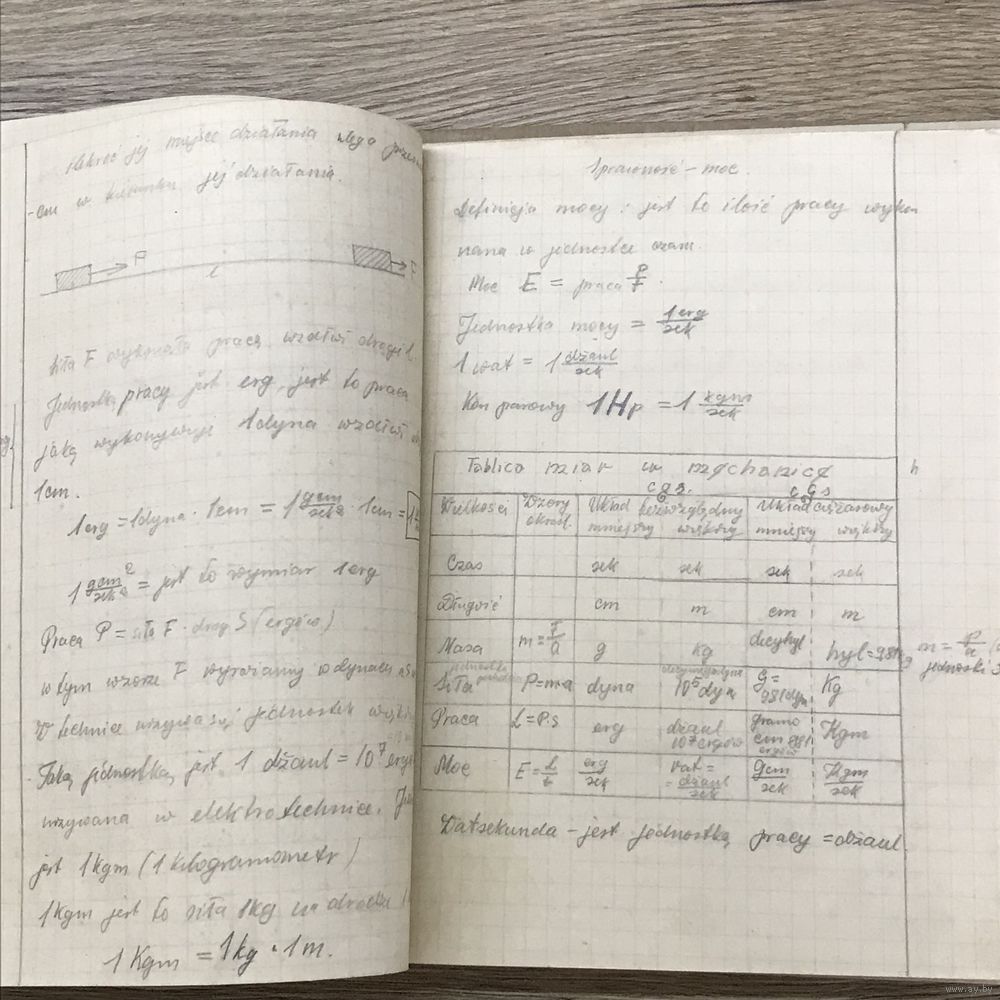 jej miejsce działania
w kierunku jej działania.
P
l
F
siła F wykonała pracę wzdłuż drogi l.
Jednostką pracy jest erg, jest to praca
jaką wykonywuje 1dyna wzdłuż
1cm.
1erg = 1dyna · 1cm = 1 gcm/sek² · 1cm =
1 gcm²/sek² = jest to wymiar 1erg
Praca P = siła F · drog S (ergów)
w tym wzorze F wyrażamy w dynach
W technice używa się jednostek
Taką jednostką jest 1 dżaul = 10⁷ erg
używana w elektrotechnice.
jest 1kgm (1 kilogramometr)
1kgm jest to siła 1kg na drodze
1 Kgm = 1kg · 1m.
Sprawność – moc.
Definicja mocy: jest to ilość pracy wyko
nana w jednostce czasu.
Moc E = praca
Jednostka mocy = 1erg/sek
1 wat = 1 dżaul/sek
Koń parowy 1Hp = 1 kgm/sek
Tablica miar w mechanice
c g s. c g s
Wielkości Wzory określ. Układ bezwzględny Układ ciężarowy
mniejszy większy mniejszy większy
Czas sek sek sek sek
Długość cm m cm m
Masa m = F/a g kg hyl = 981
m = P/a
Siła P=m·a dyna 10⁵dyn G = 981dyn Kg
Praca L=P·s erg dżaul 10⁷ergów gramo cm 981 ergów Kgm
Moc E = L/t erg/sek vat = dżaul/sek Gcm/sek Kgm/sek
Watsekunda – jest jednostką pracy = dżaul
www.ay.by